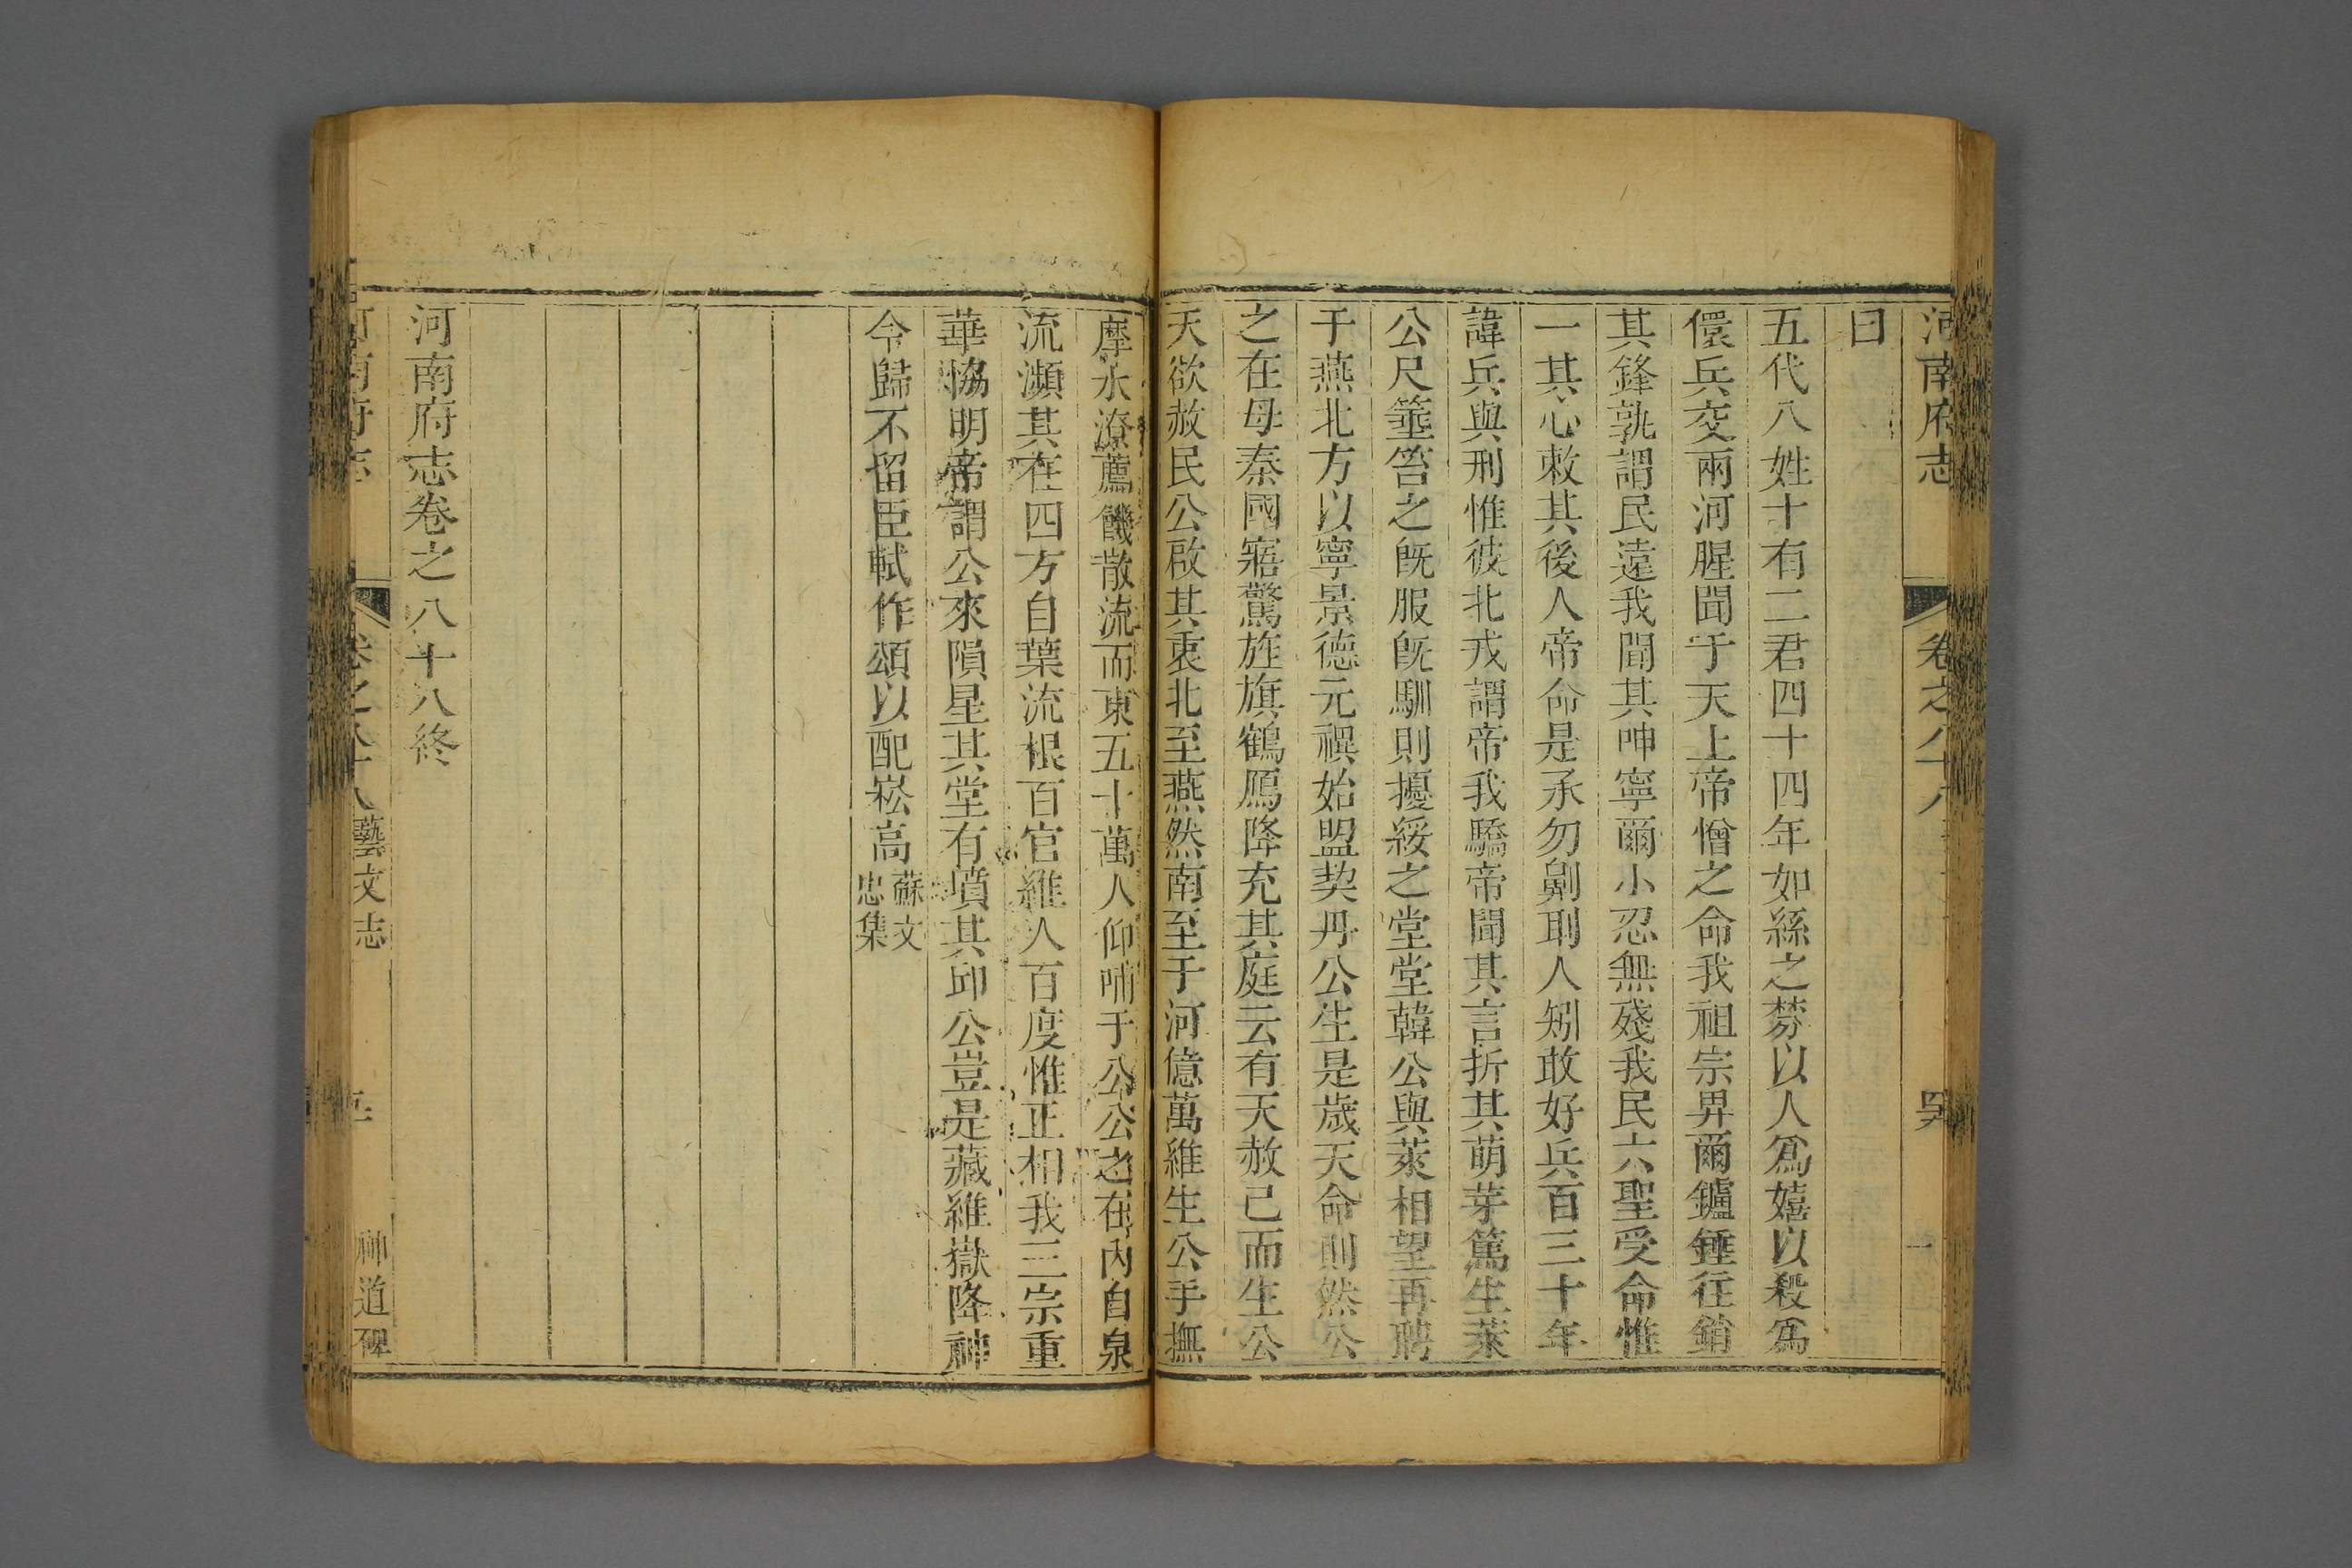 河南府志
卷之八十八
曰
五代八姓十有二君四十四年如絲之棼以人爲嬉以殺爲
儇兵交兩河腥聞于天上帝憎之命我祖宗畀爾鑪錘往銷
其鋒孰謂民遠我聞其呻寧爾小忍無殘我民六聖受命惟
一其心敕其後人帝命是承勿劓刵人矧敢好兵百三十年
諱兵與刑惟彼北戎謂帝我驕帝聞其言折其萌芽篤生萊
公尺箠笞之旣服旣馴則擾綏之堂堂韓公與萊相望再聘
于燕北方以寧景德元禩始盟契丹公生是歲天命則然公
之在母秦國寤驚旌旗鶴鴈降充其庭云有天赦已而生公
天欲赦民公啟其衷北至燕然南至于河億萬維生公手撫
摩水潦薦饑散流而東五十萬人仰哺于公公之在內自泉
流瀕其在四方自葉流根百官維人百度惟正相我三宗重
華協明帝謂公來隕星其堂有墳其邱公豈是藏維嶽降神
今歸不留臣軾作頌以配崧高
蘇文
忠集
河南府志卷之八十八終
藝文志
神道碑